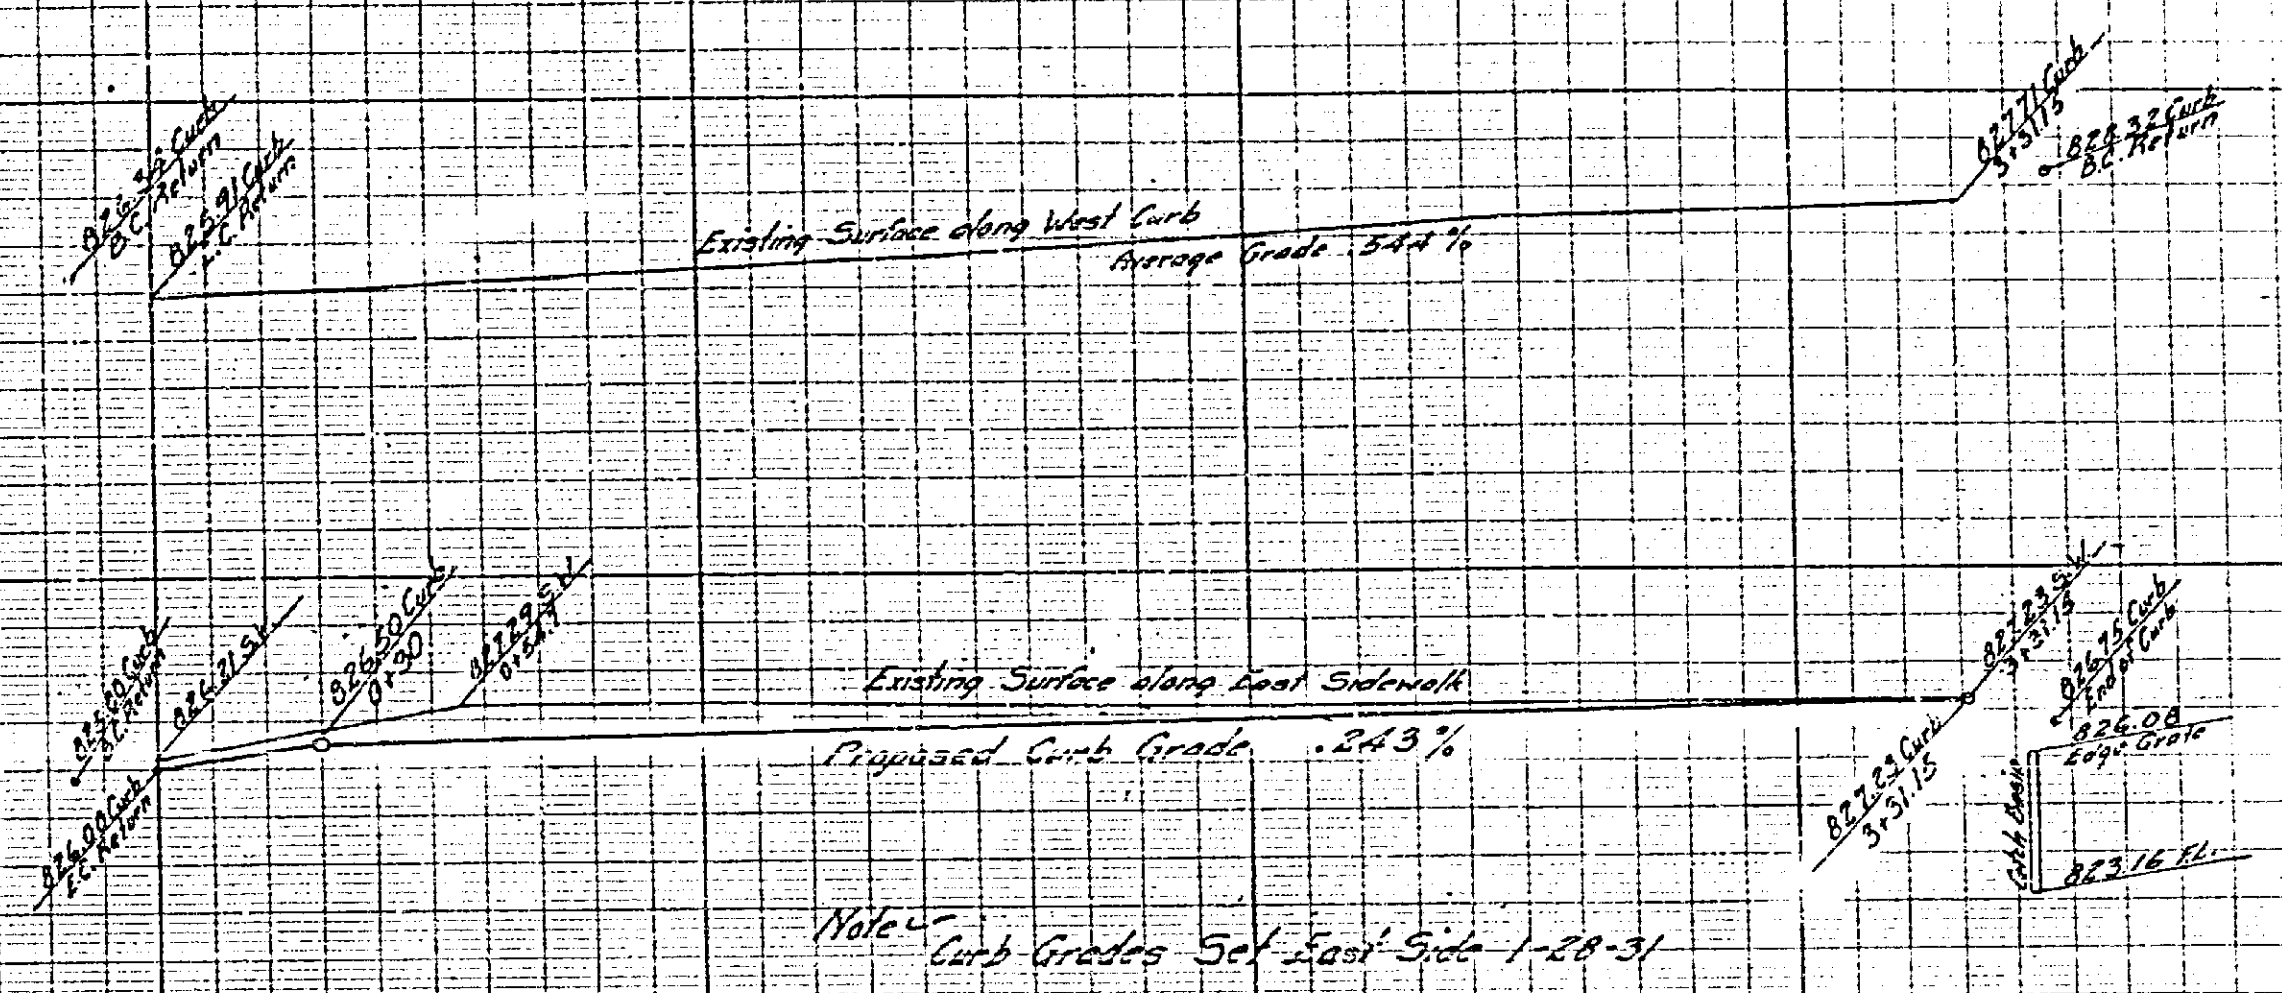 826.35 Curb
B.C. Return
825.91 Curb
E.C. Return
Existing Surface along West Curb
Average Grade .544 %
827.71 Curb
3+31.15
828.32 Curb
B.C. Return
B.C. Return
826.21 S.W.
826.50 Curb
0+30
827.29 S.W.
Existing Surface along East Sidewalk
Proposed Curb Grade .243 %
826.00 Curb
E.C. Return
827.23 S.W.
3+31.15
826.75 Curb
End of Curb
827.23 Curb
3+31.15
826.08
Edge Grate
Catch Basin
823.16 FL.
Note
Curb Grades Set East Side 1-28-31